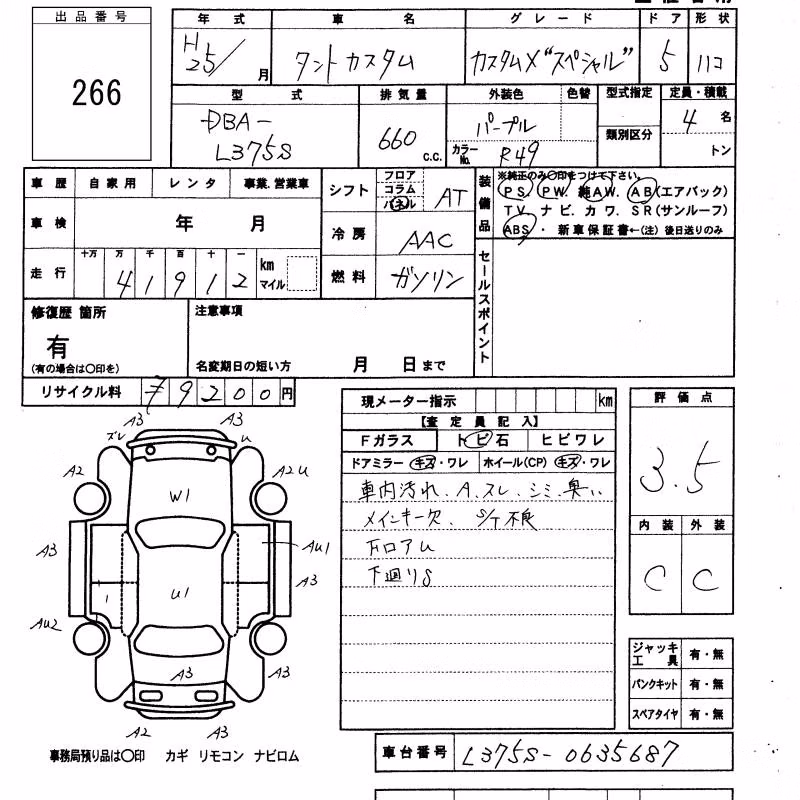 出品番号
266
年式 車名 グレード ドア 形状
H25/月 タントカスタム カスタムX"スペシャル" 5 ハコ
型式 排気量 外装色 色替 型式指定 定員・積載
DBA-
L375S
660 c.c.
パープル
カラーNo. R49
類別区分
4 名
トン
車歴 自家用 レンタ 事業.営業車
シフト フロア コラム パネル AT
装備品
※純正のみ○印をつけて下さい。
PS. PW. 純AW. AB(エアバック)
TV. ナビ. カワ. SR(サンルーフ)
ABS. 新車保証書←(注) 後日送りのみ
車検 年 月
冷房 AAC
走行 十万 万 千 百 十 一
41912 km マイル
燃料 ガソリン
セールスポイント
修復歴 箇所
有
(有の場合は○印を)
注意事項
名変期日の短い方 月 日まで
リサイクル料 ¥9200円
現メーター指示 km
【査定員記入】
Fガラス トビ石 ヒビワレ
ドアミラー キズ・ワレ ホイール(CP) キズ・ワレ
車内汚れ. A. スレ. シミ. 臭い
メインキー欠. S/T不良
FロアU
下廻りS
評価点
3.5
内装 外装
C C
ジャッキ工具 有・無
パンクキット 有・無
スペアタイヤ 有・無
A3 A3
ズレ U
A2 A2 U
W1
A3 AU1
U1 A3
1
AU2
A3 A3
A2 A3
事務局預り品は○印 カギ リモコン ナビロム
車台番号 L375S-0635687